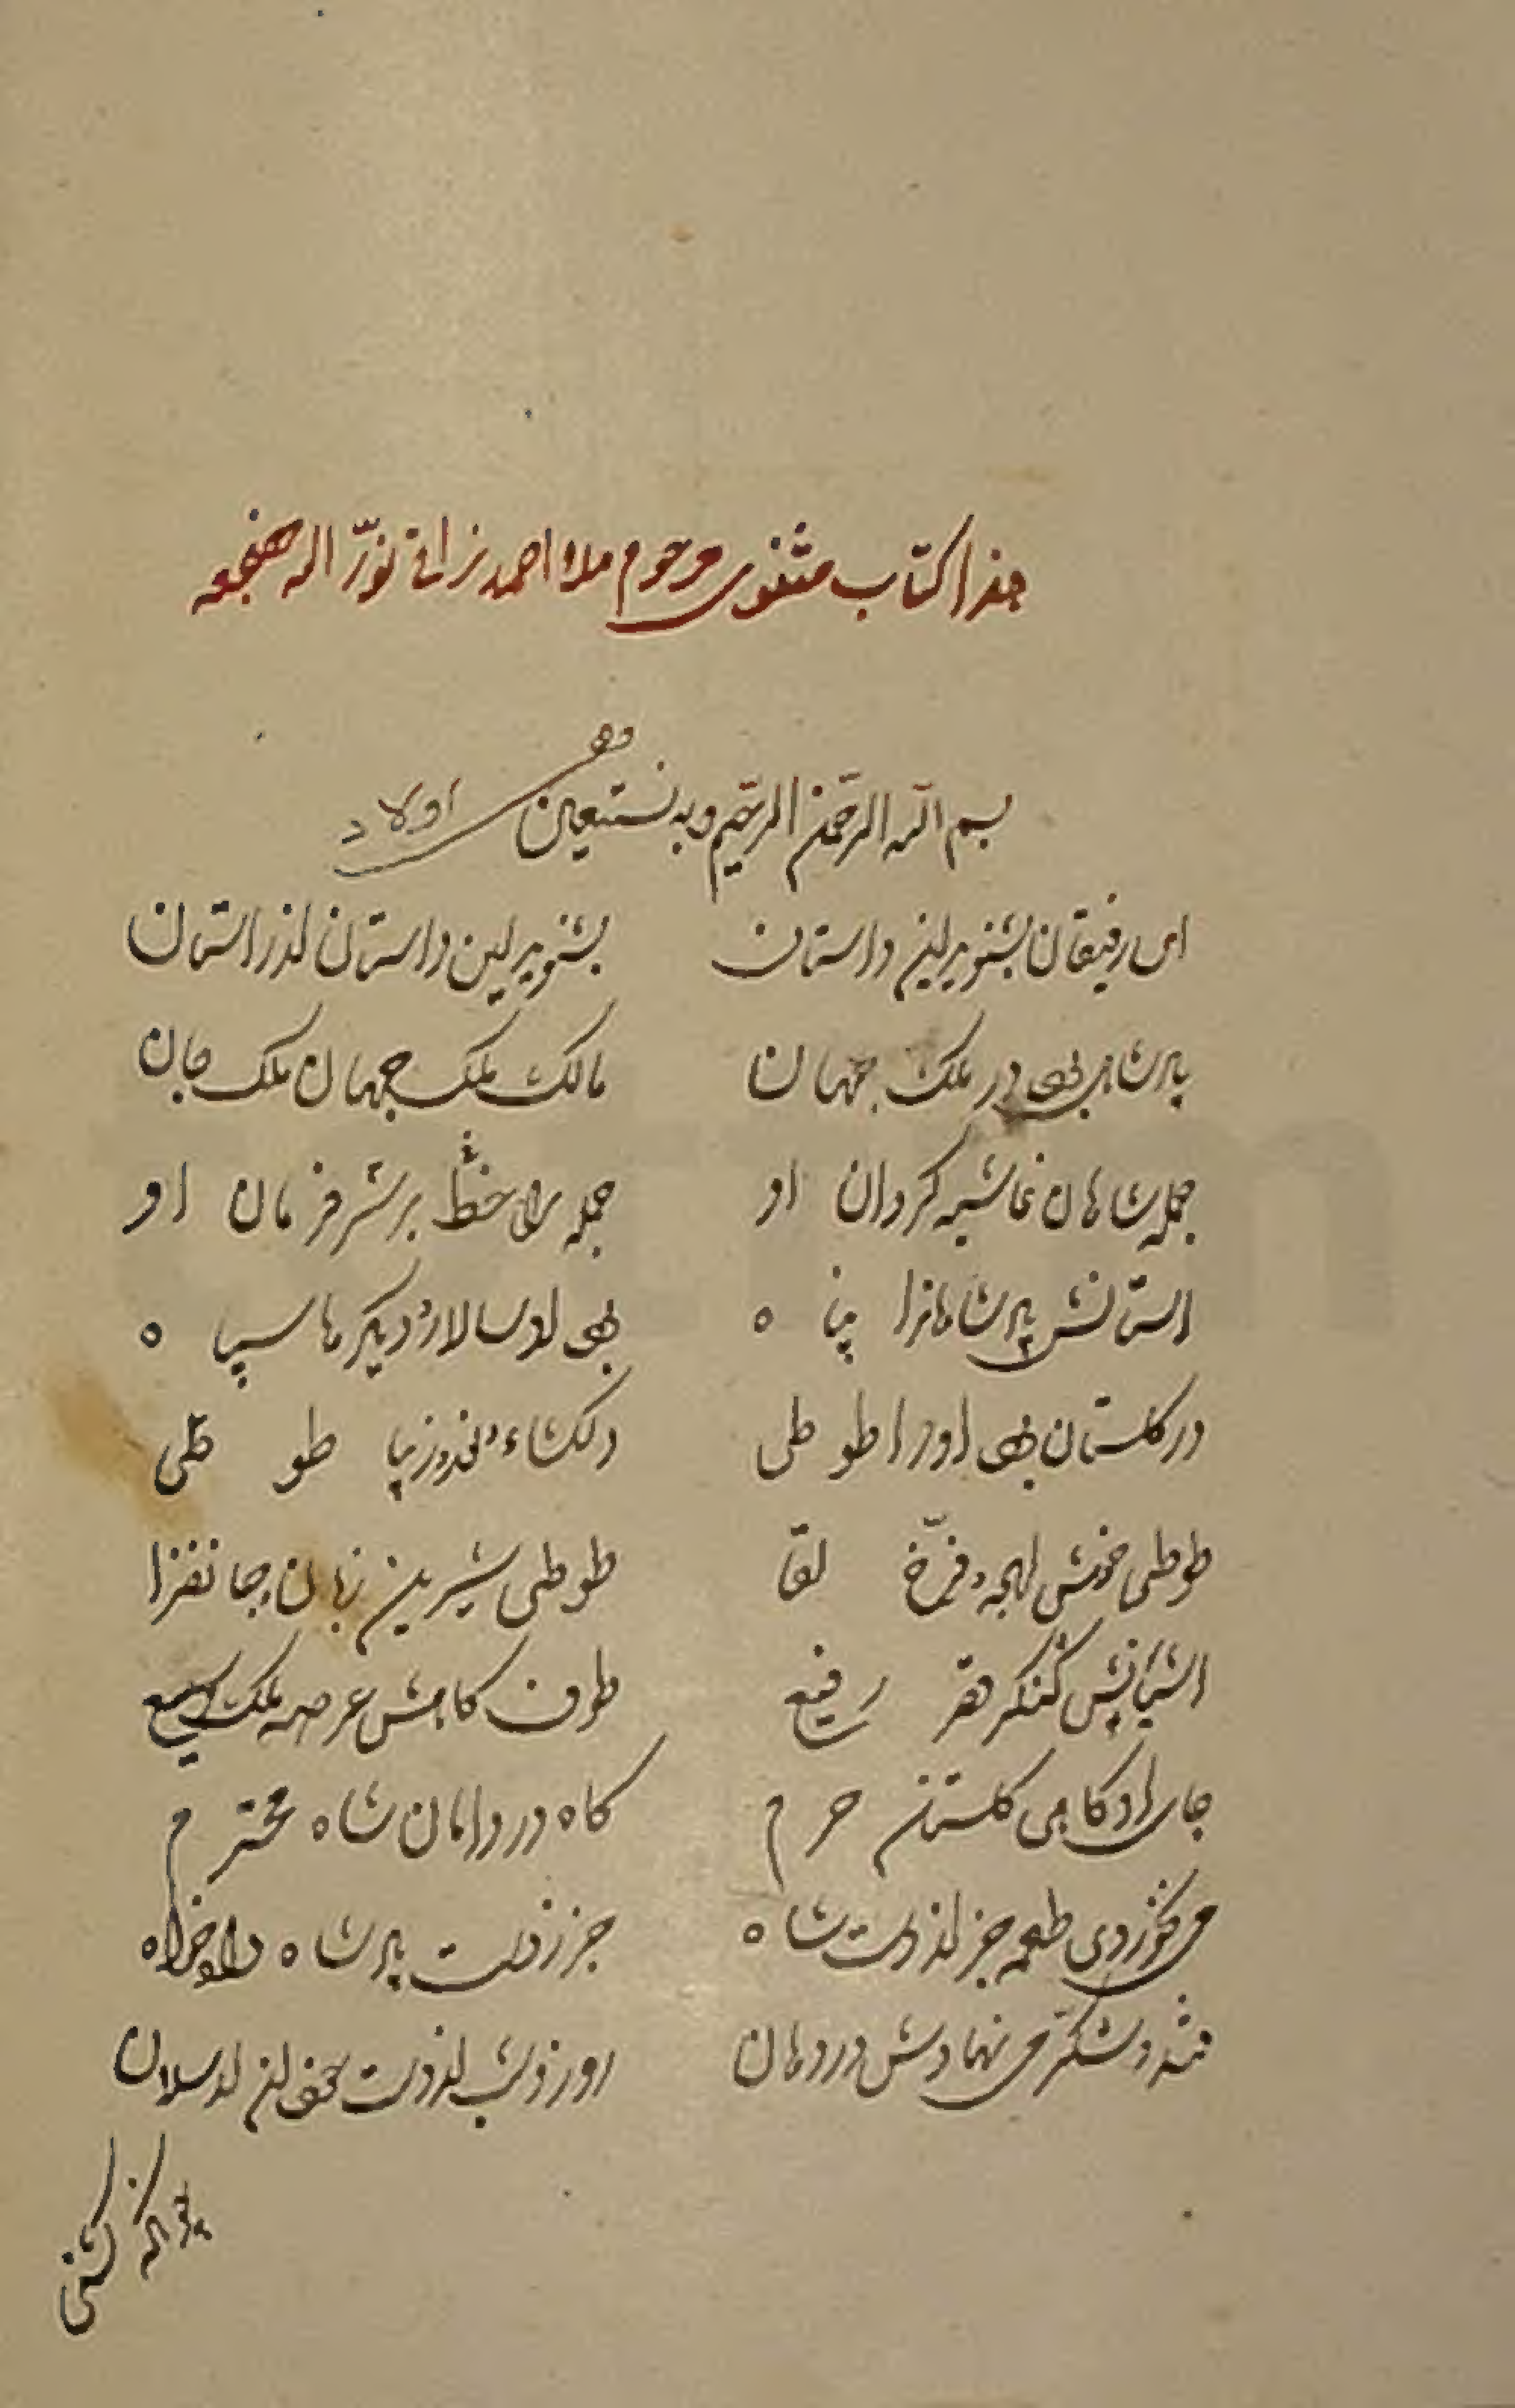 هذا کتاب مثنوی مرحوم ملا احمد نراقی نوّر الله مضجعه
وقف اولاد
بسم الله الرحمن الرحیم وبه نستعین
ای رفیقان بشنوید این داستان بشنوید این داستان از راستان
پادشاهی بود در ملک جهان مالک ملک جهان ملک جان
جمله شاهان غاشیه گردان او جمله را خط بر سر فرمان او
آستانش پادشاهانرا پناه بود او سالار و دیگرها سپاه
در گلستان بود او را طوطی دلگشاء و نغز و زیبا طوطی
طوطی خوش لهجه و فرّخ لقا طوطی شیرین زبان جانفزا
آشیانش کنگر قصر رفیع طرف کامش عرصه ملک وسیع
جای او گاهی گلستان حرم گاه در دامان شاه محترم
می نخوردی طعمه جز از دست شاه جز ز دست پادشاه دادخواه
قند و شکّر می نهادش در دهان روز و شب از دست خود آن ارسلان